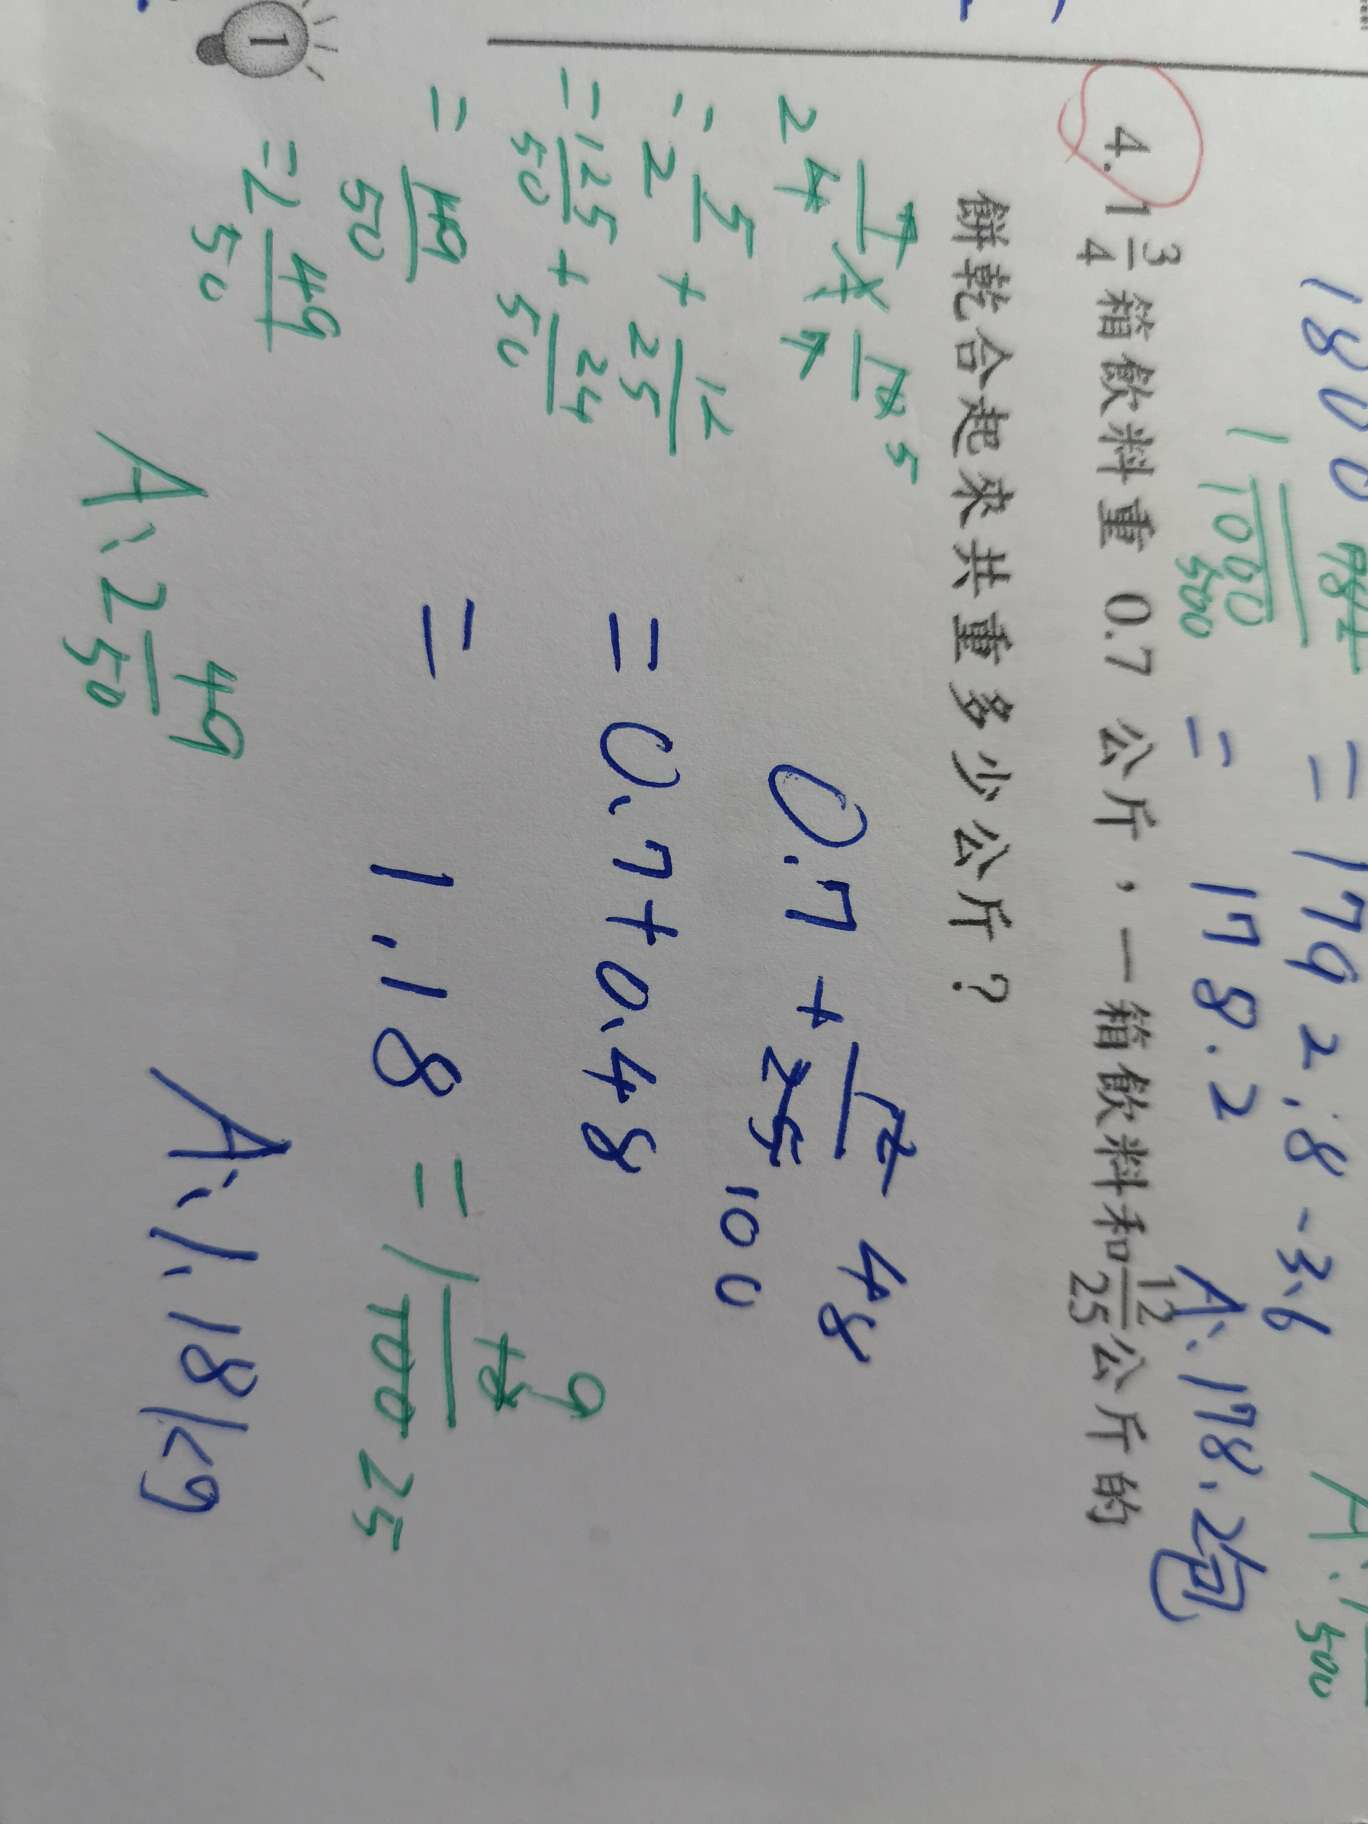 1800 = 1792.8 - 3.6
= 178.2
A:178.2包
1
1000
500
500
4. 1 3/4 箱飲料重 0.7 公斤，一箱飲料和 12/25 公斤的
餅乾合起來共重多少公斤？
0.7 + 12/25 48/100
= 0.7 + 0.48
= 1.18 = 1 18/100 9/25
A:1.18kg
7/4 × 10/7 5 2
= 5/2 + 12/25
= 125/50 + 24/50
= 149/50
= 2 49/50
A:2 49/50
1